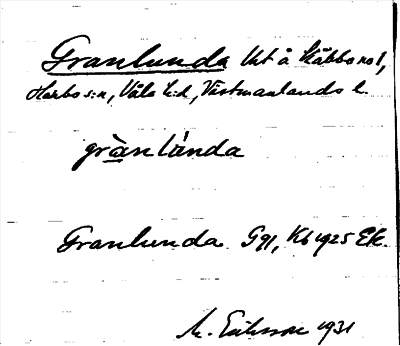 Granlunda tkt å Stäbbo no 1,
Harbo s:n, Våla h:d, Västmanlands l.
grànlúnda
Granlunda Gql, Kb 1925 Ek.
M. Eriksson 1931